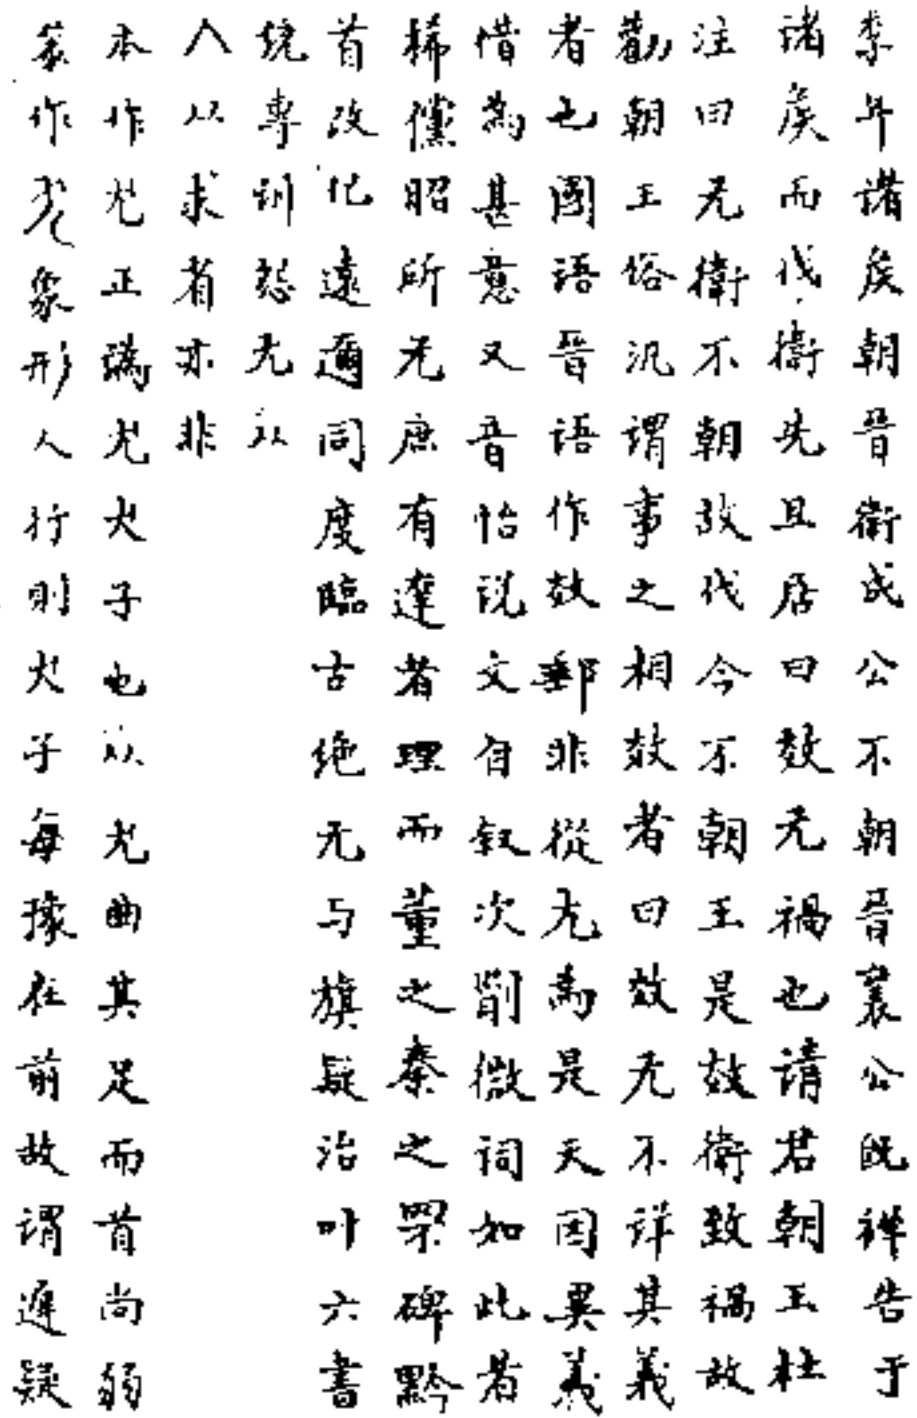 季年諸矦朝晉衛成公不朝晉襄公既祥告于
諸矦而伐衛先且居曰效尤禍也請君朝王杜
注曰尤衛不朝故伐今不朝王是效衛致禍故
勸朝王俗汎謂事之相效者曰效尤不詳其義
者也國語晉語作效郵非從尤為是天因異義
借為甚意又音怡説文自叙次崩微詞如此者
稀儻昭所尤庶有達者理而董之秦之罘碑黔
首改化遠邇同度臨古絶尤与旗疑治叶六書
統專訓怨尤从
人从求者亦非
本作尢正譌尢犬子也从尢曲其足而首尚弱
篆作 象形人行則犬子每豫在前故謂遲疑